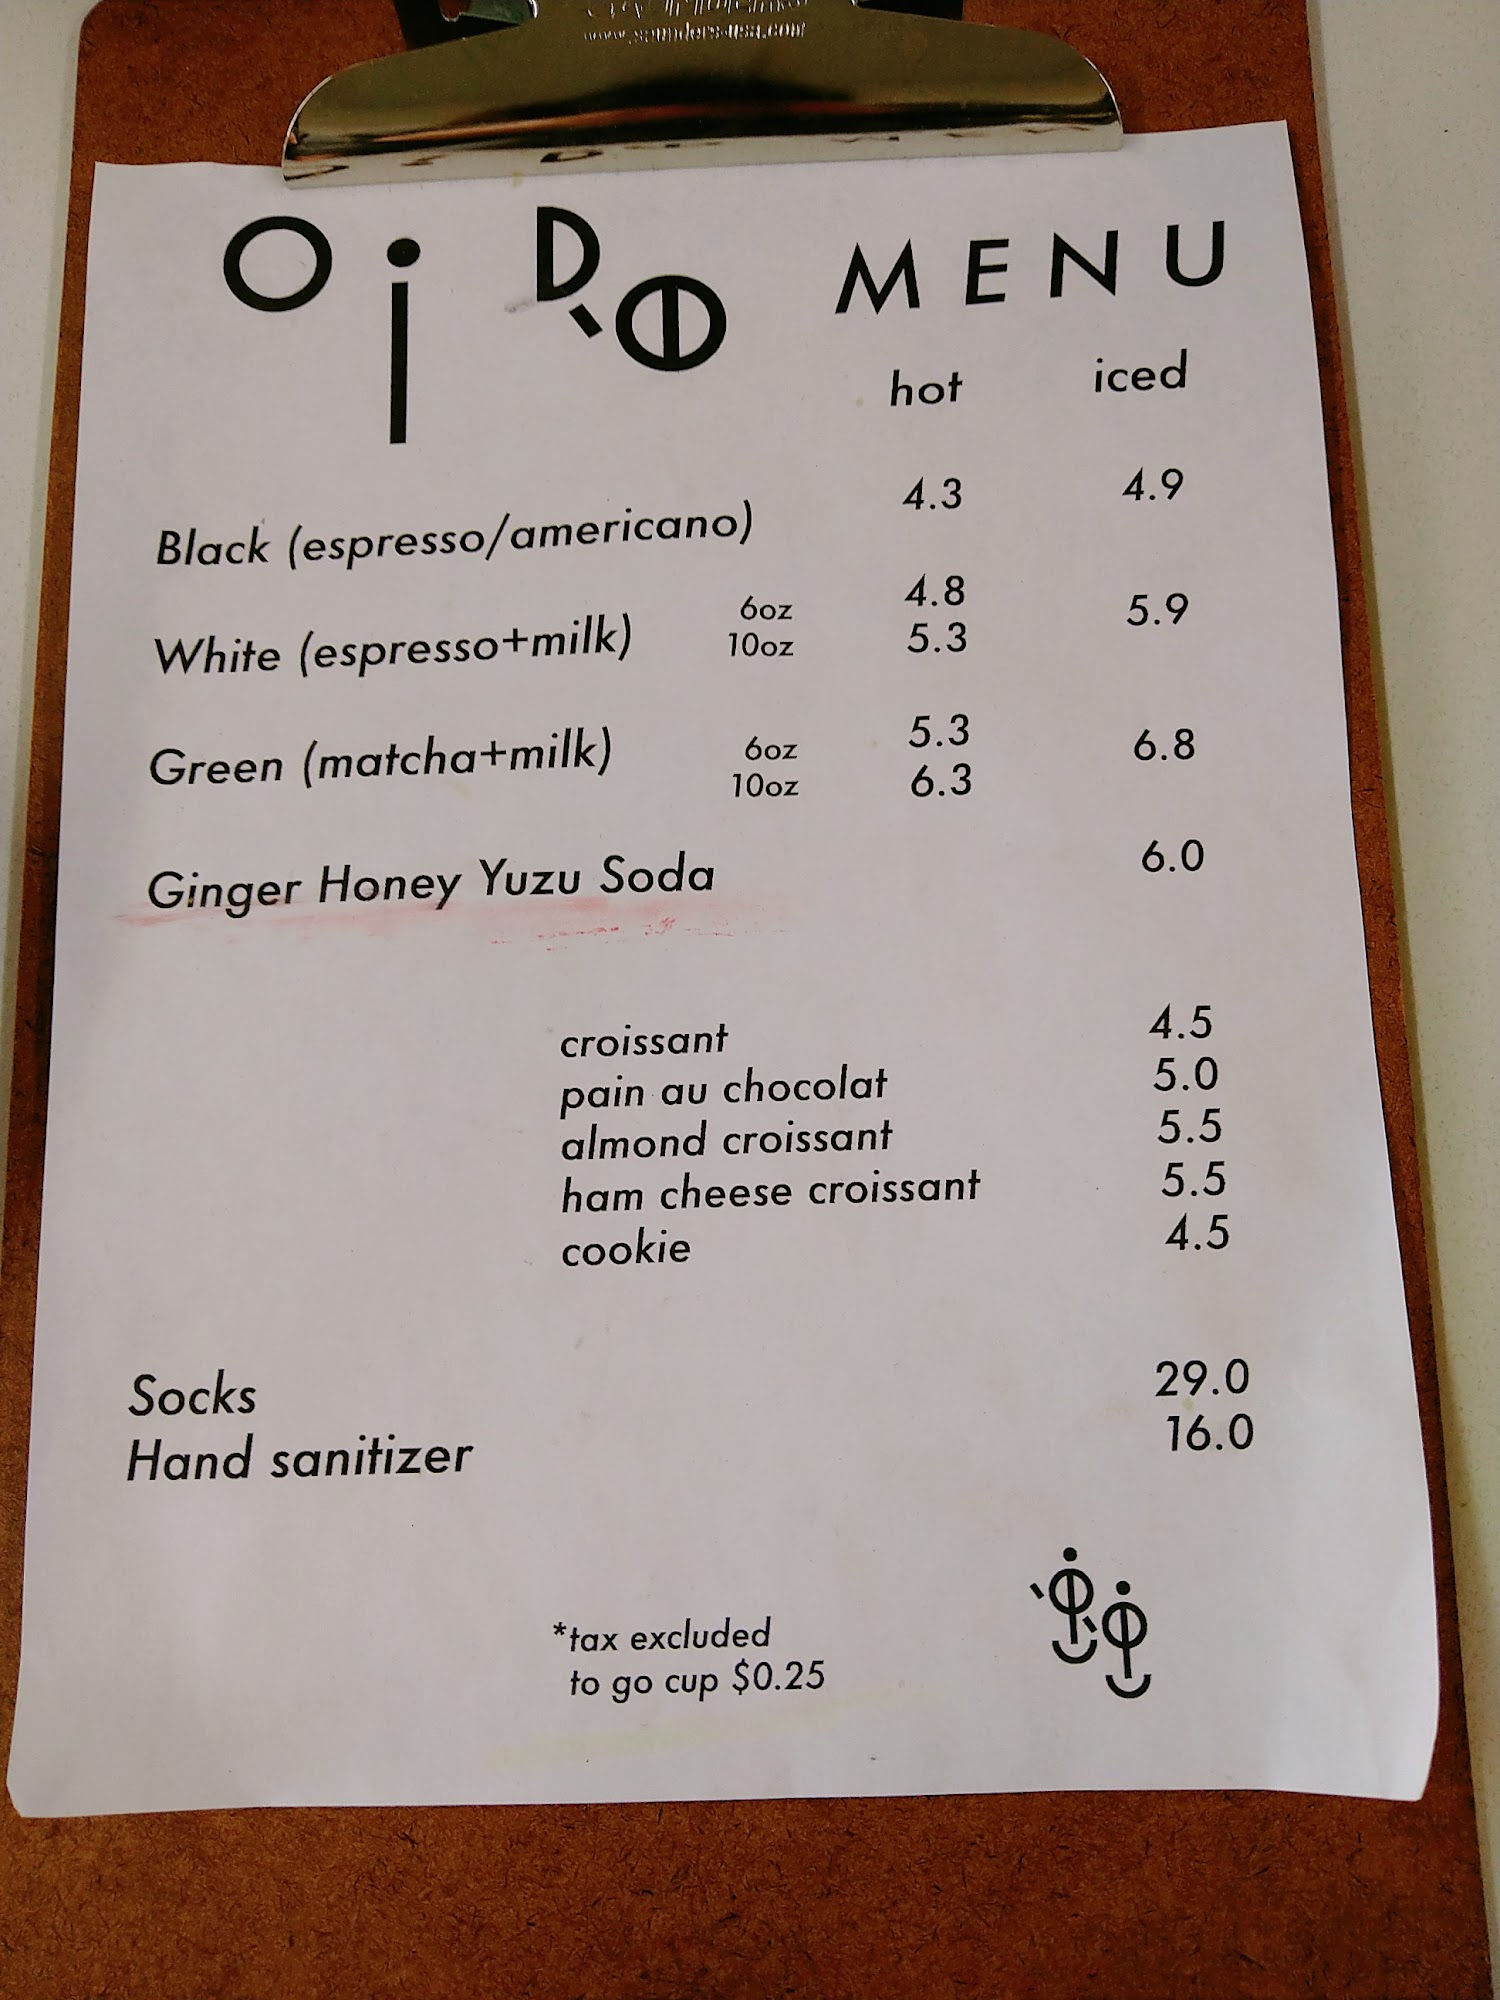 www.saunders-usa.com
Oi Ro MENU
hot iced
Black (espresso/americano) 4.3 4.9
White (espresso+milk) 6oz 4.8 5.9
10oz 5.3
Green (matcha+milk) 6oz 5.3 6.8
10oz 6.3
Ginger Honey Yuzu Soda 6.0
croissant 4.5
pain au chocolat 5.0
almond croissant 5.5
ham cheese croissant 5.5
cookie 4.5
Socks 29.0
Hand sanitizer 16.0
*tax excluded
to go cup $0.25